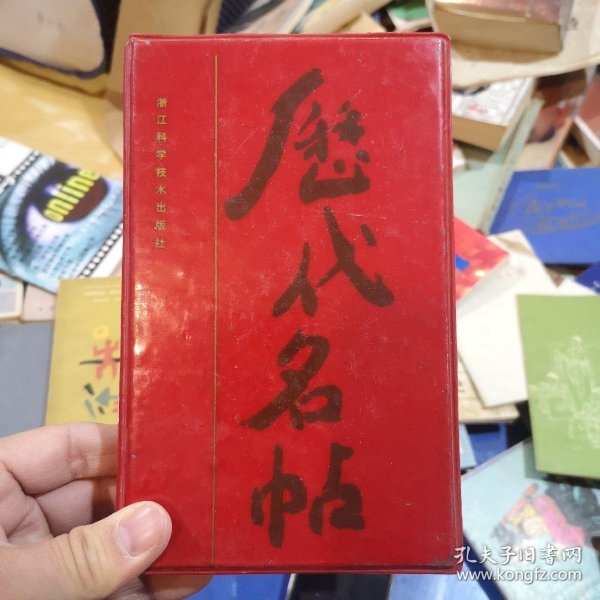 歷代名帖
浙江科学技术出版社
online
孔夫子旧书网
www.kongfz.com